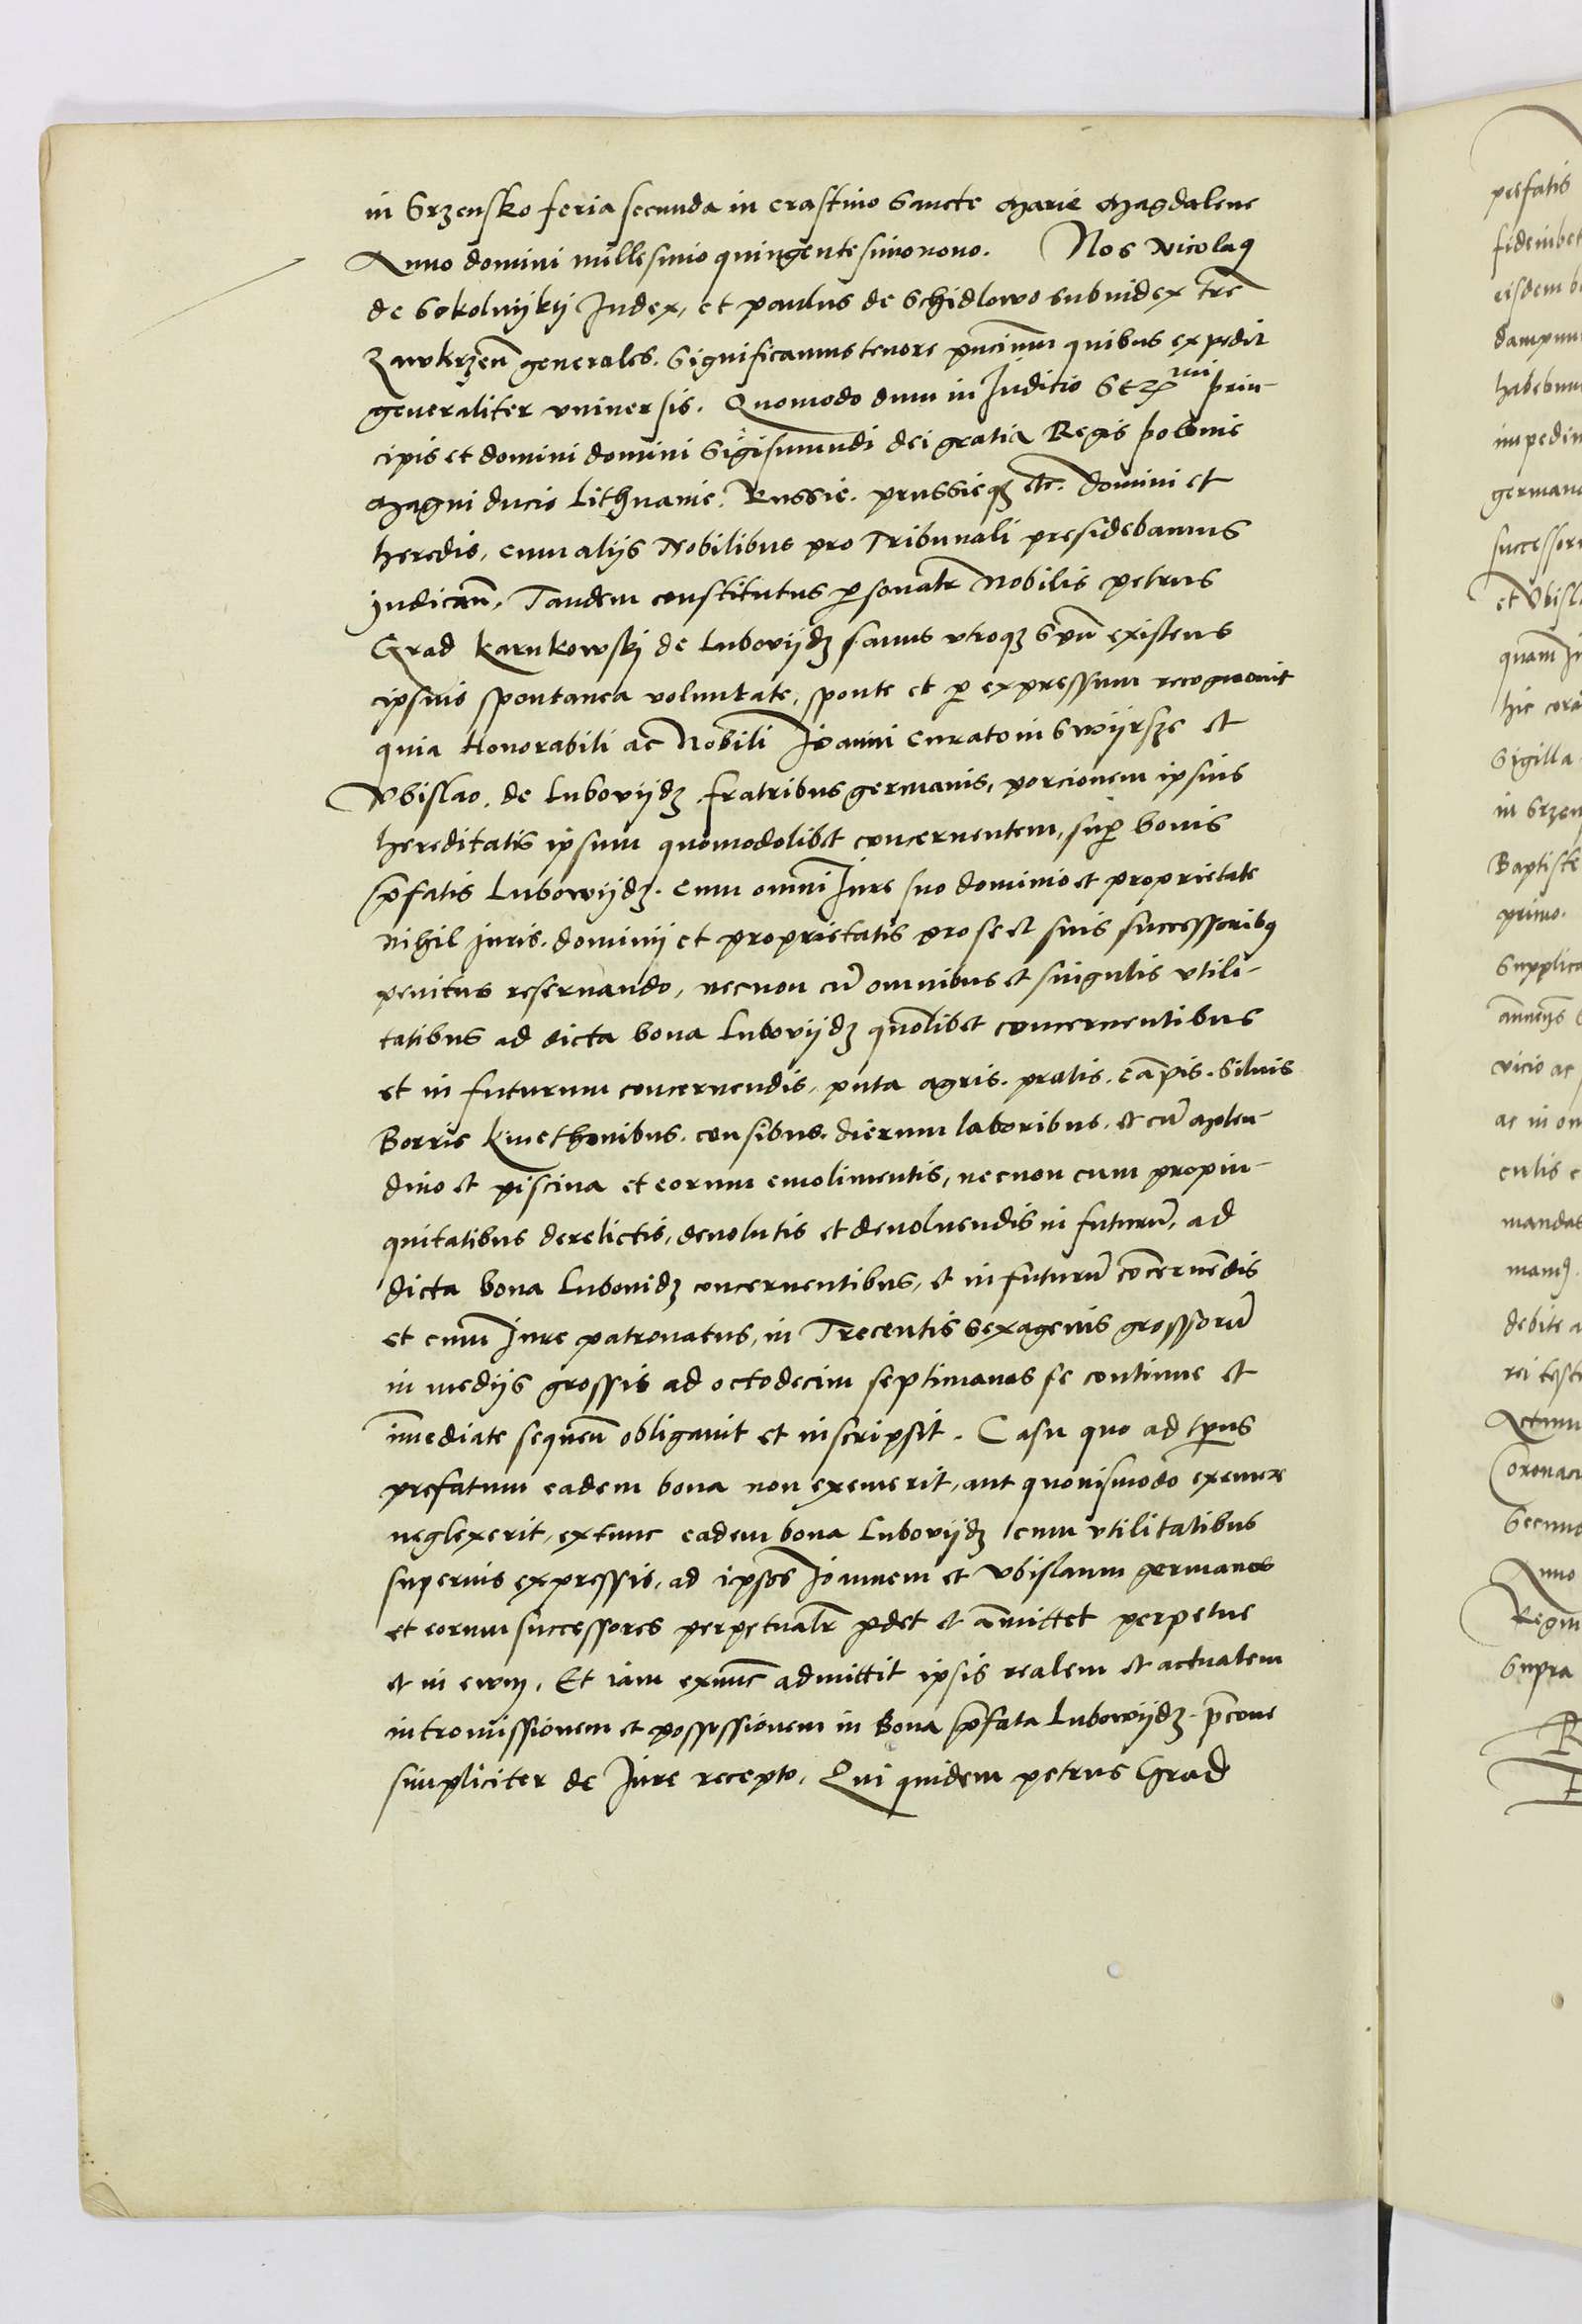 in Srzensko feria secunda in crastino Sancte Marie Magdalene
Anno domini millesimo quingentesimo nono. Nos Nicolaꝰ
de Sokolnijkij Judex, et Paulus de Schidlowo subiudex tr̄e
Zawkrzen̄ generales. Significamus tenore pn̄cium quibus expedit
generaliter vniuersis. Quomodo dum in Juditio Ser^mi prin-
cipis et domini domini Sigismundi dei gratia Regis polonie
Magni ducis Lithuanie. Russie. prussieqꝫ etc. domini et
heredis, cum alijs Nobilibus pro Tribunali presidebamus
judican̄. Tandem constitutus ꝑsonalr̄ Nobilis petrus
Grad Karnkowskj de Lubovijdz sanus vtroqꝫ existens
ipsius spontanea voluntate, sponte et ꝑ expressum recognouit
quia Honorabili ac Nobili Joanni curato in Swijrsze et
Vbislao. de Lubovijdz fratribus germanis, porcionem ipsius
hereditatis ipsum quomodolibet concernentem, suꝑ bonis
p̄fatis Lubowijdz. cum omni Jure suo dominio et proprietate
nihil juris. dominij et proprietatis pro se et suis successoribꝰ
penitus reseruando, necnon cū omnibus et singulis vtili-
tatibus ad dicta bona Lubovijdz quōlibet concernentibus
et in futurum concernendis, puta agris. pratis. cāpis. siluis
Borris kmethonibus. censibus. dierum laboribus, et cū molen-
dino et piscina et eorum emolimentis, necnon cum propin-
quitatibus derelictis, deuolutis et deuoluendis in futurū, ad
dicta bona Lubouidz concernentibus, et in futurū cōcernēdis
et cum Jure patronatus, in Trecentis sexagenis grossorū
in medijs grossis ad octodecim septimanas se continue et
īmediate sequen̄ obligauit et inscripsit. Casu quo ad tp̄us
prefatum eadem bona non exemerit, aut quouismodo exemere
neglexerit, extunc eadem bona Lubovijdz cum vtilitatibus
superius expressis, ad ipsos Joannem et Vbislaum germanos
et eorum successores perpetualr̄ ꝑdet et āmittet perpetue
et in ewm. Et iam exnūc admittit ipsis realem et actualem
intromissionem et possessionem in Bona p̄fata Lubowijdz. p̄cone
simpliciter de Jure recepto. Qui quidem petrus Grad